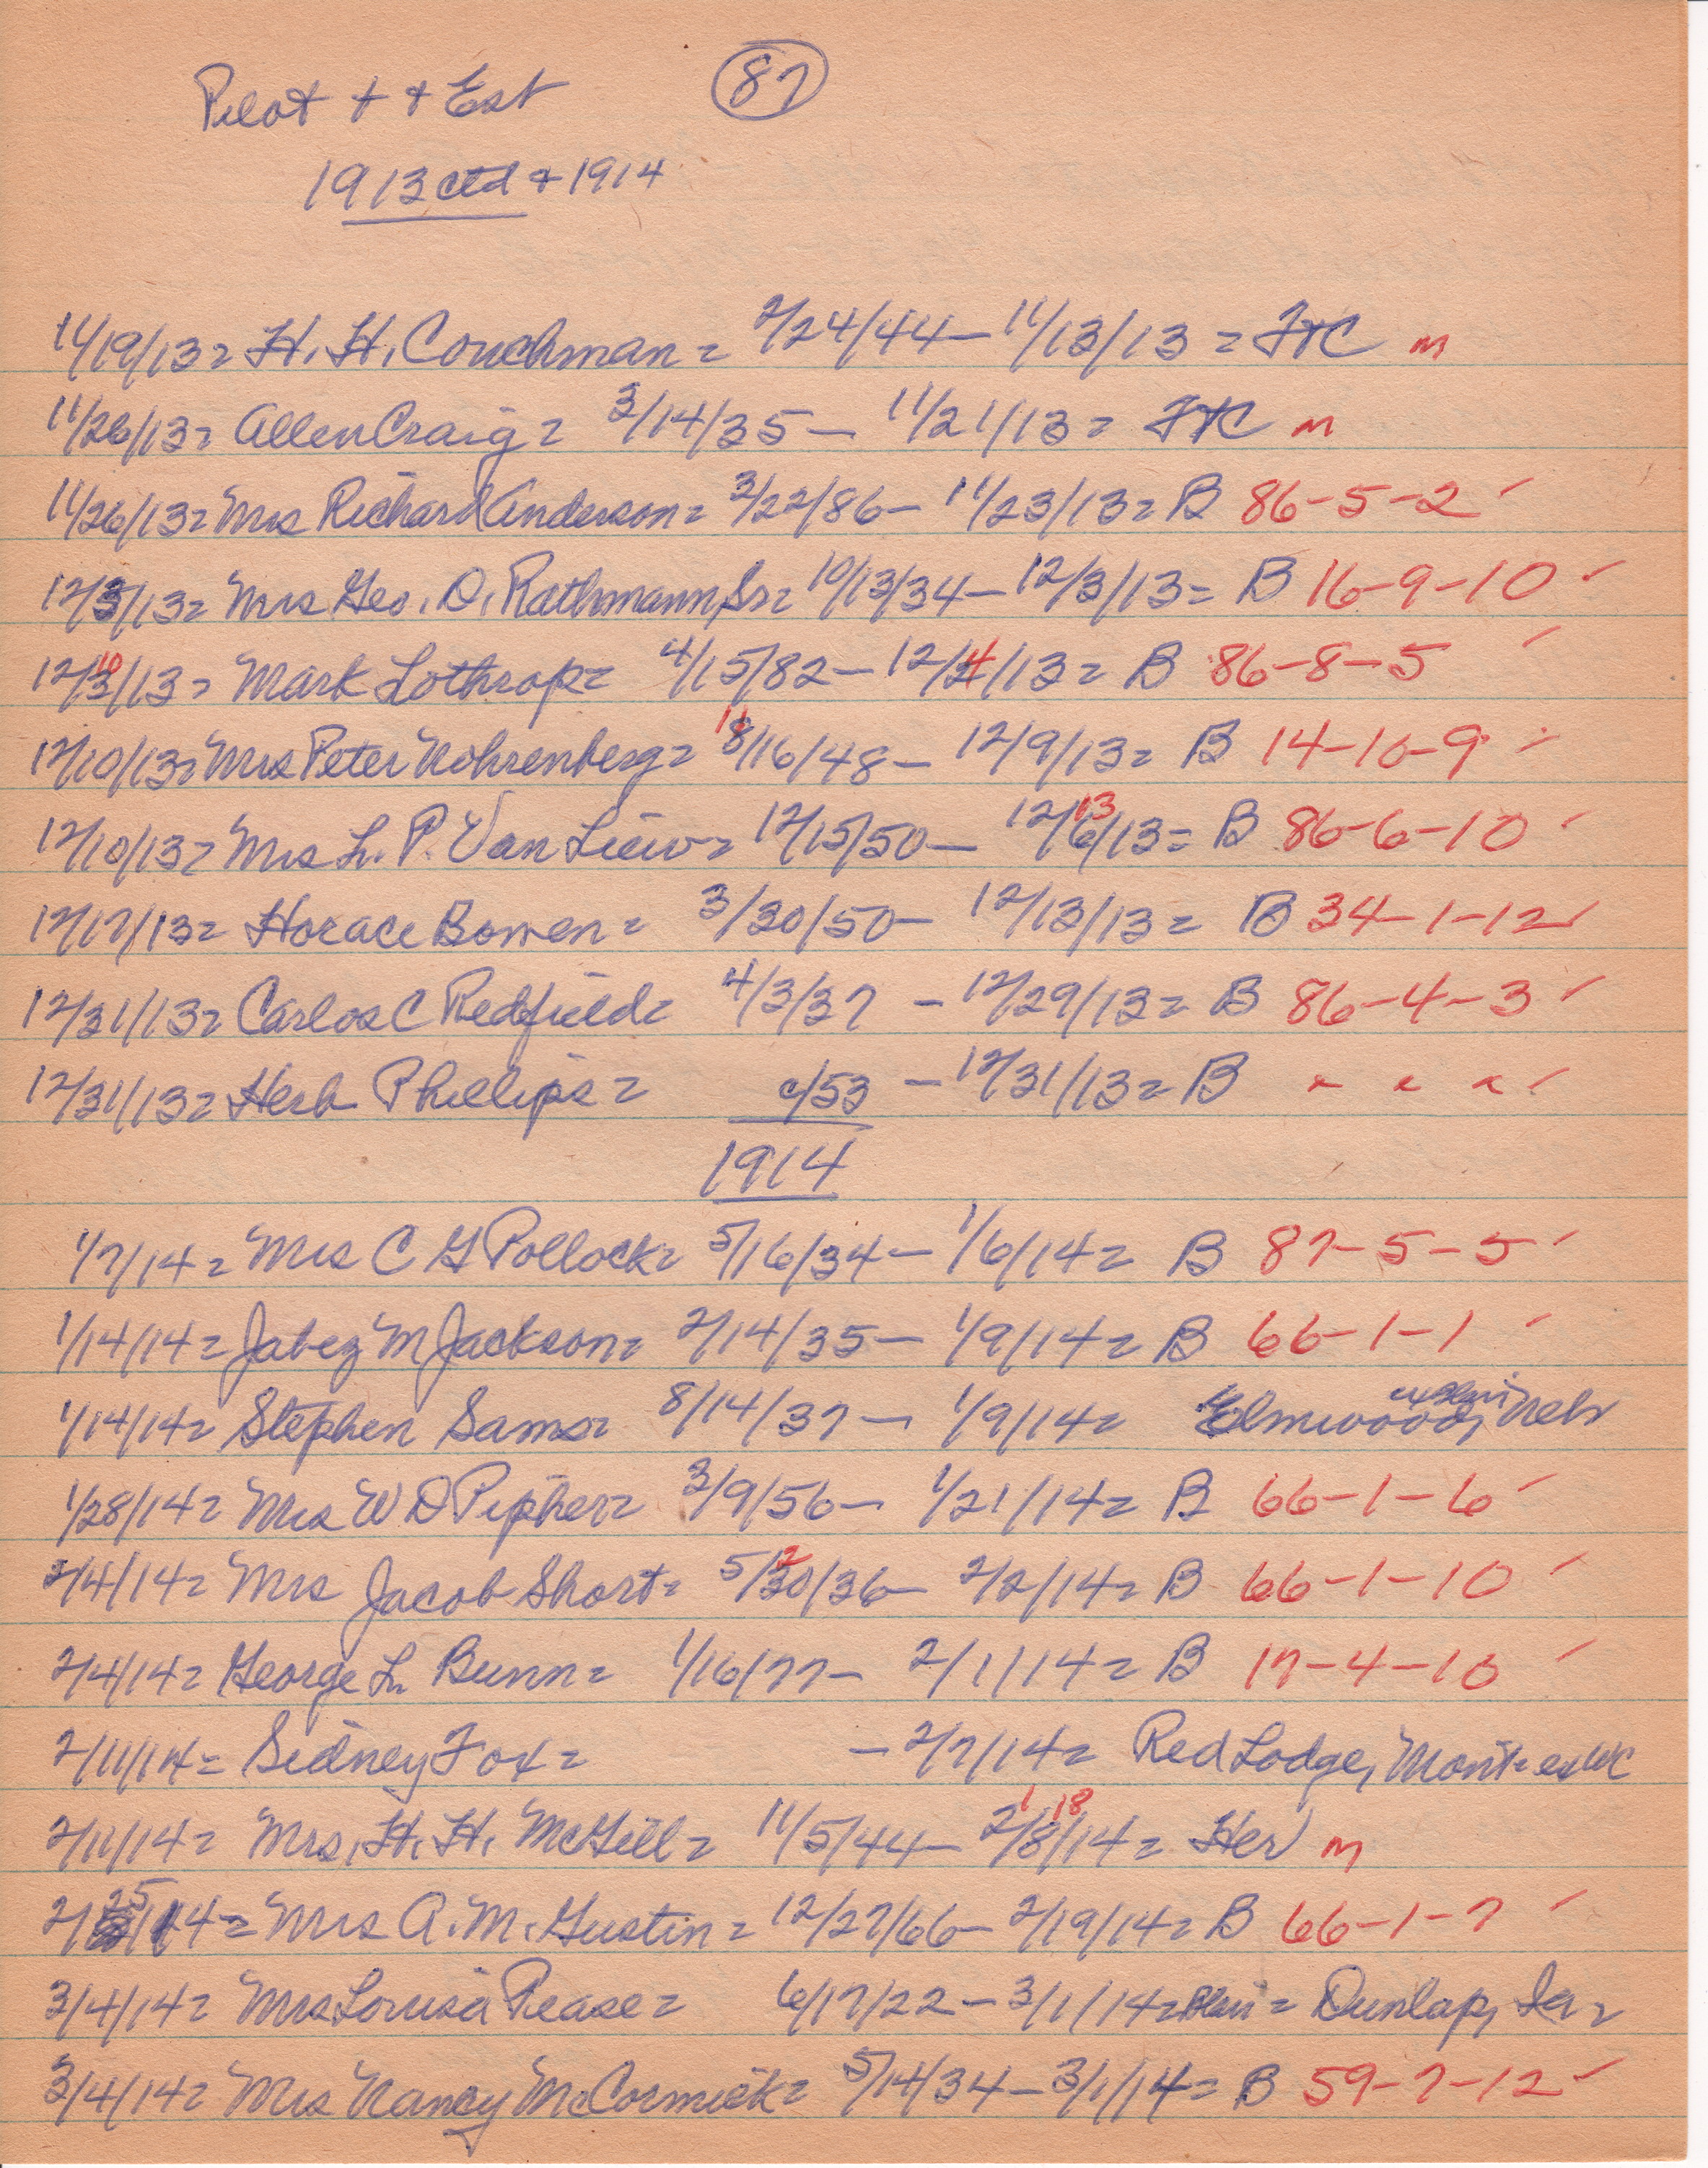 Pilot + + Est (87)
1913 ctd + 1914
11/19/13 = H. H. Couchman = 2/24/44 - 11/13/13 = FTC m
11/26/13 = Allen Craig = 3/14/35 - 11/21/13 = FTC m
11/26/13 = Mrs Richard Anderson = 3/22/86 - 11/23/13 = B 86-5-2 ✓
12/3/13 = Mrs Geo. D. Rathmann, Sr = 10/13/34 - 12/3/13 = B 16-9-10 ✓
12/10/13 = Mark Lothrop = 4/15/82 - 12/4/13 = B 86-8-5 ✓
12/10/13 = Mrs Peter Nohrenberg = 11/16/48 - 12/9/13 = B 14-10-9 ✓
12/10/13 = Mrs L. P. Van Liew = 12/15/50 - 12/6/13 = B 86-6-10 ✓
13
12/17/13 = Horace Bowen = 3/30/50 - 12/13/13 = B 34-1-12 ✓
12/31/13 = Carlos C Redfield = 4/3/37 - 12/29/13 = B 86-4-3 ✓
12/31/13 = Herb Phillips = c/53 - 12/31/13 = B " " " ✓
1914
1/7/14 = Mrs C G Pollock = 5/16/34 - 1/6/14 = B 87-5-5 ✓
1/14/14 = Jabez M Jackson = 2/14/35 - 1/9/14 = B 66-1-1 ✓
1/14/14 = Stephen Sams = 8/14/37 - 1/9/14 = Elmwood, Nebr
1/28/14 = Mrs W D Pipher = 3/9/56 - 1/21/14 = B 66-1-6 ✓
2/4/14 = Mrs Jacob Short = 5/20/36 - 2/2/14 = B 66-1-10 ✓
2/4/14 = George L. Bunn = 1/16/77 - 2/1/14 = B 17-4-10 ✓
2/11/14 = Sidney Fox = - 2/7/14 = Red Lodge, Mont = exWC
1 18
2/11/14 = Mrs. H. H. McGill = 11/5/44 - 2/8/14 = Her m
2/25/14 = Mrs A. M. Gustin = 12/27/66 - 2/19/14 = B 66-1-7 ✓
3/4/14 = Mrs Louisa Pease = 6/17/22 - 3/1/14 = Blair = Dunlap, Ia =
3/4/14 = Mrs Nancy McCormick = 5/14/34 - 3/1/14 = B 59-7-12 ✓